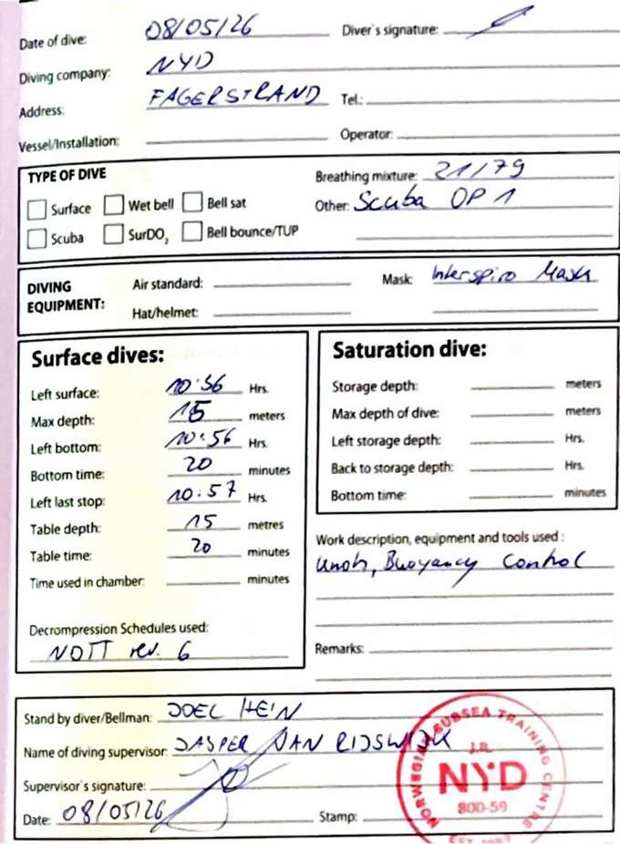 Date of dive: 08/05/26 Diver's signature:
Diving company: NYD
Address: FAGERSTRAND Tel.:
Vessel/Installation: Operator:
TYPE OF DIVE
Breathing mixture: 21/79
Surface Wet bell Bell sat
Other: Scuba OP 1
Scuba SurDO2 Bell bounce/TUP
DIVING EQUIPMENT:
Air standard: Mask: Interspiro Mask
Hat/helmet:
Surface dives:
Left surface: 10:36 Hrs.
Max depth: 15 meters
Left bottom: 10:56 Hrs.
Bottom time: 20 minutes
Left last stop: 10:57 Hrs.
Table depth: 15 metres
Table time: 20 minutes
Time used in chamber: minutes
Decrompression Schedules used:
NDTT rev. 6
Saturation dive:
Storage depth: meters
Max depth of dive: meters
Left storage depth: Hrs.
Back to storage depth: Hrs.
Bottom time: minutes
Work description, equipment and tools used :
Buoyancy Control
Remarks:
Stand by diver/Bellman: JOEL HEIN
Name of diving supervisor: JASPER VAN RIJSWIJK
Supervisor's signature:
Date: 08/05/26 Stamp:
NORWEGIAN SUBSEA TRAINING CENTRE
J.R.
NYD
800-59